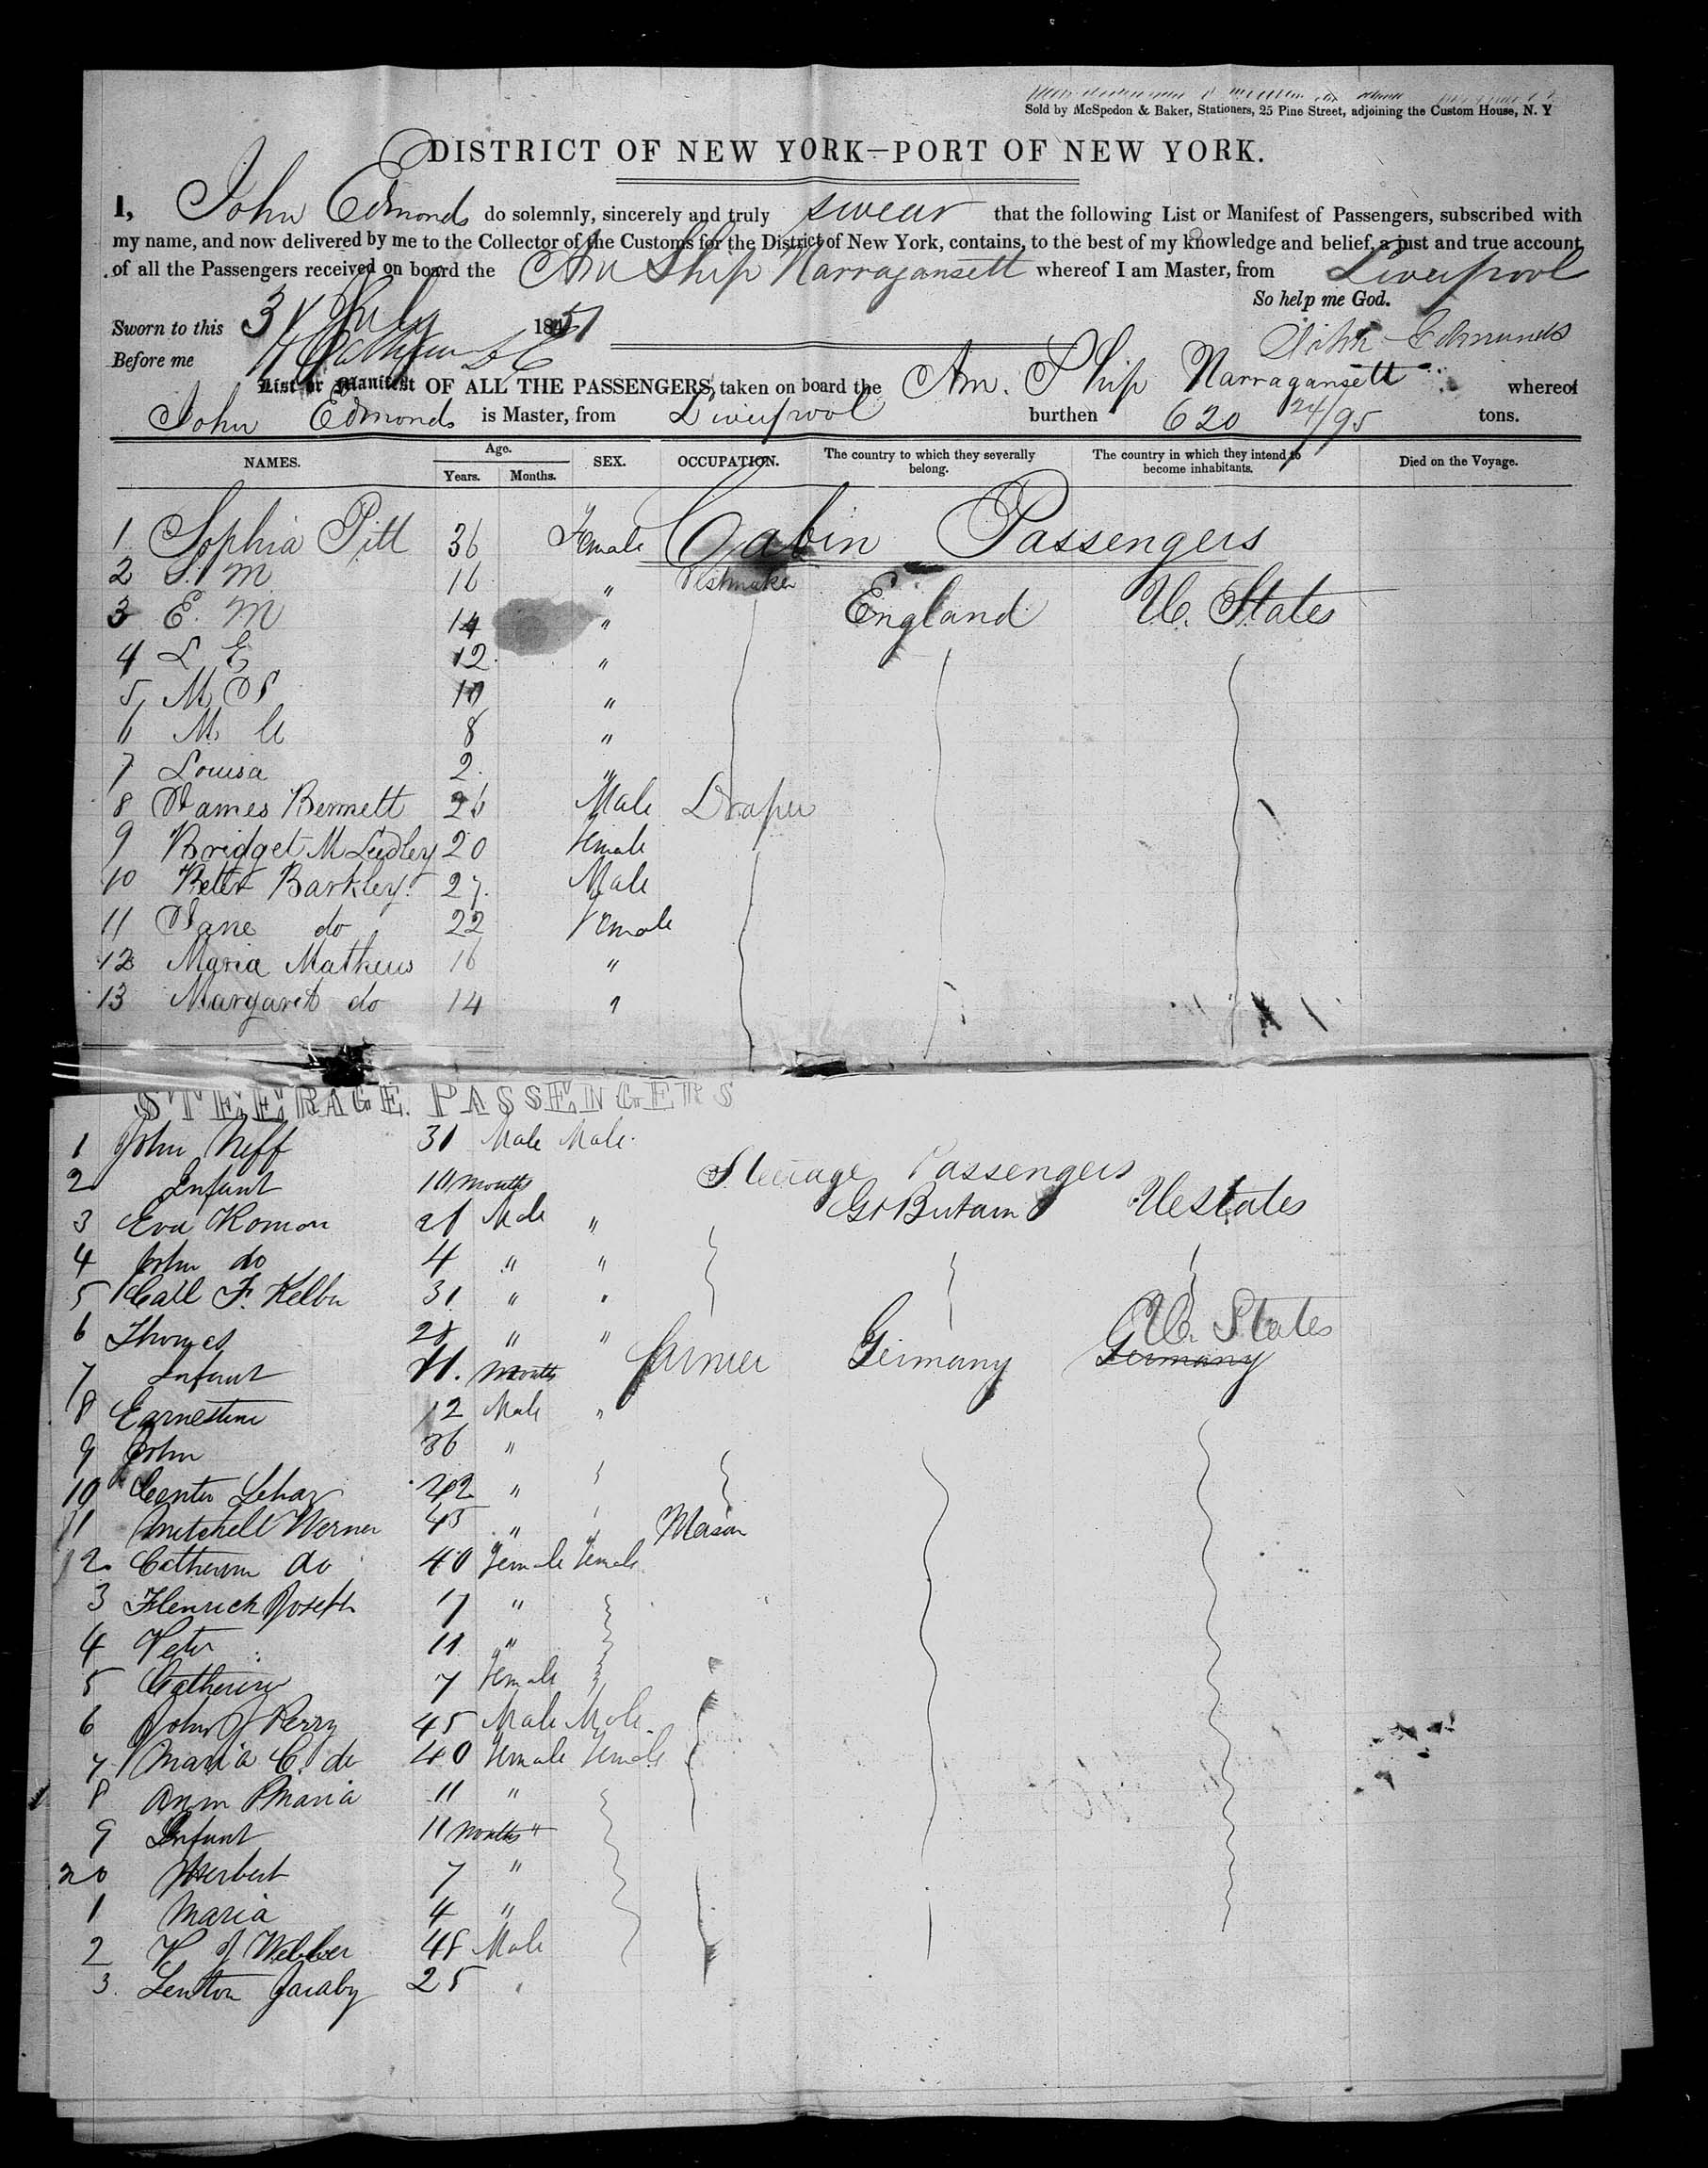 Sold by McSpedon & Baker, Stationers, 25 Pine Street, adjoining the Custom House, N. Y
DISTRICT OF NEW YORK—PORT OF NEW YORK.
I, John Edmonds do solemnly, sincerely and truly swear that the following List or Manifest of Passengers, subscribed with
my name, and now delivered by me to the Collector of the Customs for the District of New York, contains, to the best of my knowledge and belief, a just and true account
of all the Passengers received on board the Am Ship Narragansett whereof I am Master, from Liverpool
So help me God.
Sworn to this 31 July 1851
John Edmunds
Before me
List or Manifest OF ALL THE PASSENGERS, taken on board the Am. Ship Narragansett whereof
John Edmonds is Master, from Liverpool burthen 620 24/95 tons.
NAMES. Age. Years. Months. SEX. OCCUPATION. The country to which they severally belong. The country in which they intend to become inhabitants. Died on the Voyage.
1 Sophia Pitt 36 Female Cabin Passengers
2 S. M 16 "
3 E. M 14 " England U. States
4 L E 12 "
5 M S 10 "
6 M 8 "
7 Louisa 2 "
8 James Bennett 26 Male Draper
9 Bridget M Leedley 20 Female
10 Peter Barkley 27 Male
11 Jane do 22 Female
12 Maria Mathews 16 "
13 Margaret do 14 "
STEERAGE PASSENGERS
1 John Neff 31 Male Male
Steerage Passengers
2 Infant 10 months
3 Eva Roman 21 Male " Gt Britain U States
4 John do 4 " "
5 F. Kelbu 31 " "
6 Thomas 28 " " U. States
7 Infant 11. Months farmer Germany Germany
8 Earnestine 12 Male "
9 John 36 "
10 42 "
11 Mitchell Werner 45 " " Mason
12 Catherine do 40 Female Female
3 Henrick Joseph 17 "
4 Peter 11 "
5 Catherine 7 Female
6 John J Perry 45 Male Male
7 Maria C. do 40 Female Female
8 Ann Maria 11 "
9 Infant 11 months "
20 Herbert 7 "
1 Maria 4 "
2 Webber 48 Male
3. Jacaby 25 "